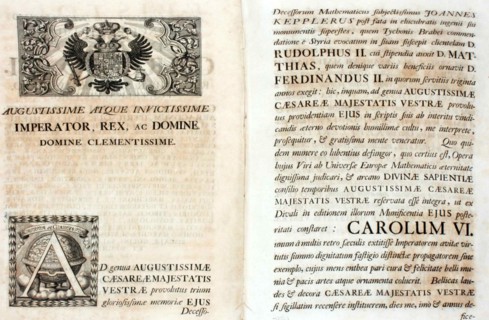 AUGUSTISSIME ATQUE INVICTISSIME
IMPERATOR, REX, AC DOMINE
DOMINE CLEMENTISSIME.
AD genua AUGUSTISSIMÆ
CÆSAREÆ MAJESTATIS
VESTRÆ provolutus trium
gloriosissimæ memoriæ EJUS
Decesso-
Decessorum Mathematicus subjectissimus JOANNES
KEPPLERUS post fata in elucubratis ingenii sui
monumentis superstes, quem Tychonis Brahei commen-
datione è Styria evocatum in suam suscepit clientelam D.
RUDOLPHUS II. cui stipendia auxit D. MAT-
THIAS, quem denique variis beneficiis ornavit D.
FERDINANDUS II. in quorum servitiis triginta
annos exegit: hic, inquam, ad genua AUGUSTISSIMÆ
CÆSAREÆ MAJESTATIS VESTRÆ provolu-
tus providentiam EJUS in scriptis suis ab interitu vindi-
candis æterno devotionis humillimæ cultu, me interprete,
prosequitur, & gratissima mente veneratur. Quo qui-
dem munere eo libentius defungor, quo certius est, Opera
hujus Viri ab Universæ Europæ Mathematicis æternitate
dignissima judicari, & arcano DIVINÆ SAPIENTIÆ
consilio temporibus AUGUSTISSIMÆ CÆSAREÆ
MAJESTATIS VESTRÆ reservata esse integra, ut ex
Divali in editionem illorum Munificentia EJUS poste-
ritati constaret: CAROLUM VI.
unum à multis retro sæculis extitisse Imperatorem avitæ vir-
tutis summo dignitatum fastigio distinctæ propagatorem sine
exemplo, cujus mens enthea pari cura & felicitate belli mu-
nia & pacis artes atque ornamenta coluerit. Bellicas lau-
des & decora CÆSAREÆ MAJESTATIS VESTRÆ
si sigillatim recensere instituerem, dies me, imò & annus
fice-